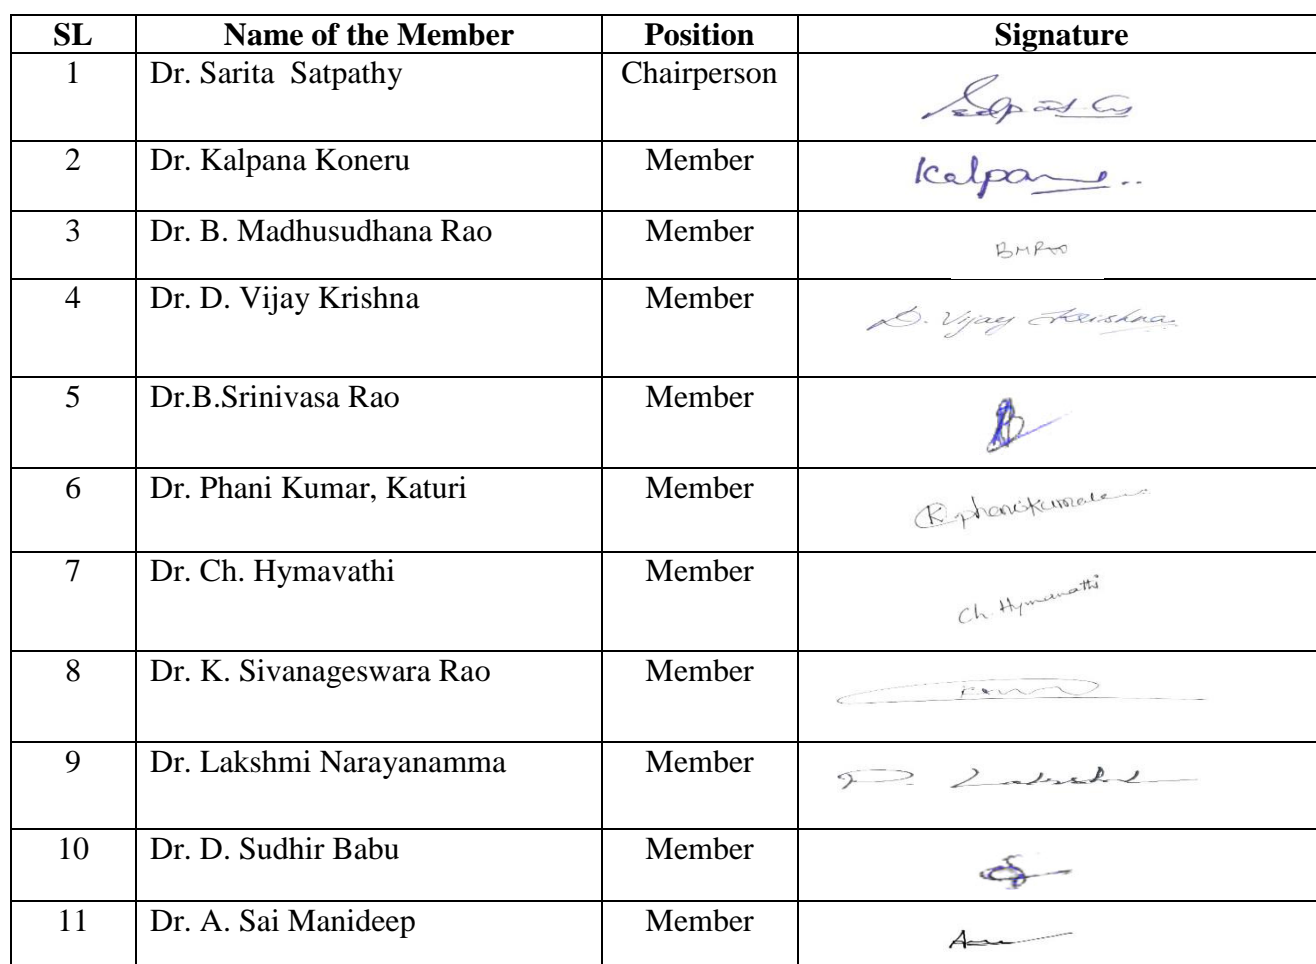 SL Name of the Member Position Signature
1 Dr. Sarita Satpathy Chairperson Satpathy
2 Dr. Kalpana Koneru Member Kalpana
3 Dr. B. Madhusudhana Rao Member BMRao
4 Dr. D. Vijay Krishna Member D. Vijay Krishna
5 Dr.B.Srinivasa Rao Member
6 Dr. Phani Kumar, Katuri Member K phanikumar
7 Dr. Ch. Hymavathi Member Ch. Hymavathi
8 Dr. K. Sivanageswara Rao Member
9 Dr. Lakshmi Narayanamma Member P. Lakshmi
10 Dr. D. Sudhir Babu Member
11 Dr. A. Sai Manideep Member